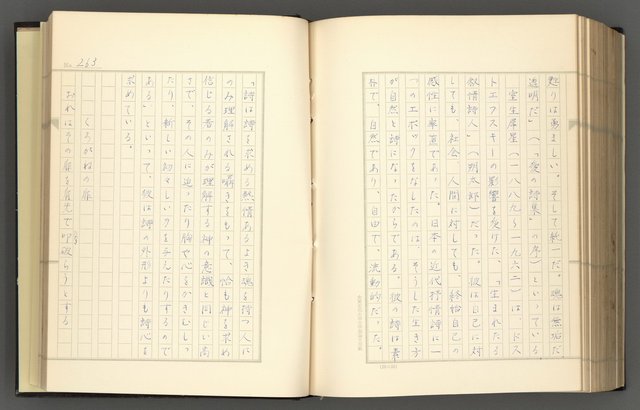 怒りは勇ましい。そして純一だ。魂は無垢だ
透明だ」（「愛の詩集」の序）といっている。
室生犀星（一八八九〜一九六二）は、ドス
トエフスキーの影響を受けた、「生まれたる
叙情詩人」（朔太郎）だった。彼は自己に対
しても、社会、人間に対しても、終始自己の
感性に率直であった。日本の近代抒情詩に一
つのエポックをなしたのは、そうした生き方
が自然と詩になったからである。彼の詩は素
朴で、自然であり、自由で、流動的だった。
No. 263
「詩は詩を求める熱情あるよき魂を持つ人に
のみ理解される囁きをもって、恰も神を求め
信じる者のみが理解する神の意識と同じい高
さで、その人に迫ったり胸や心をかきむしっ
たり、新しい初々しい力を与えたりするので
ある」といって、彼は詩の外形よりも詩心を
求めている。
くろがねの扉
おれはその扉を肩先で叩き破らうとする